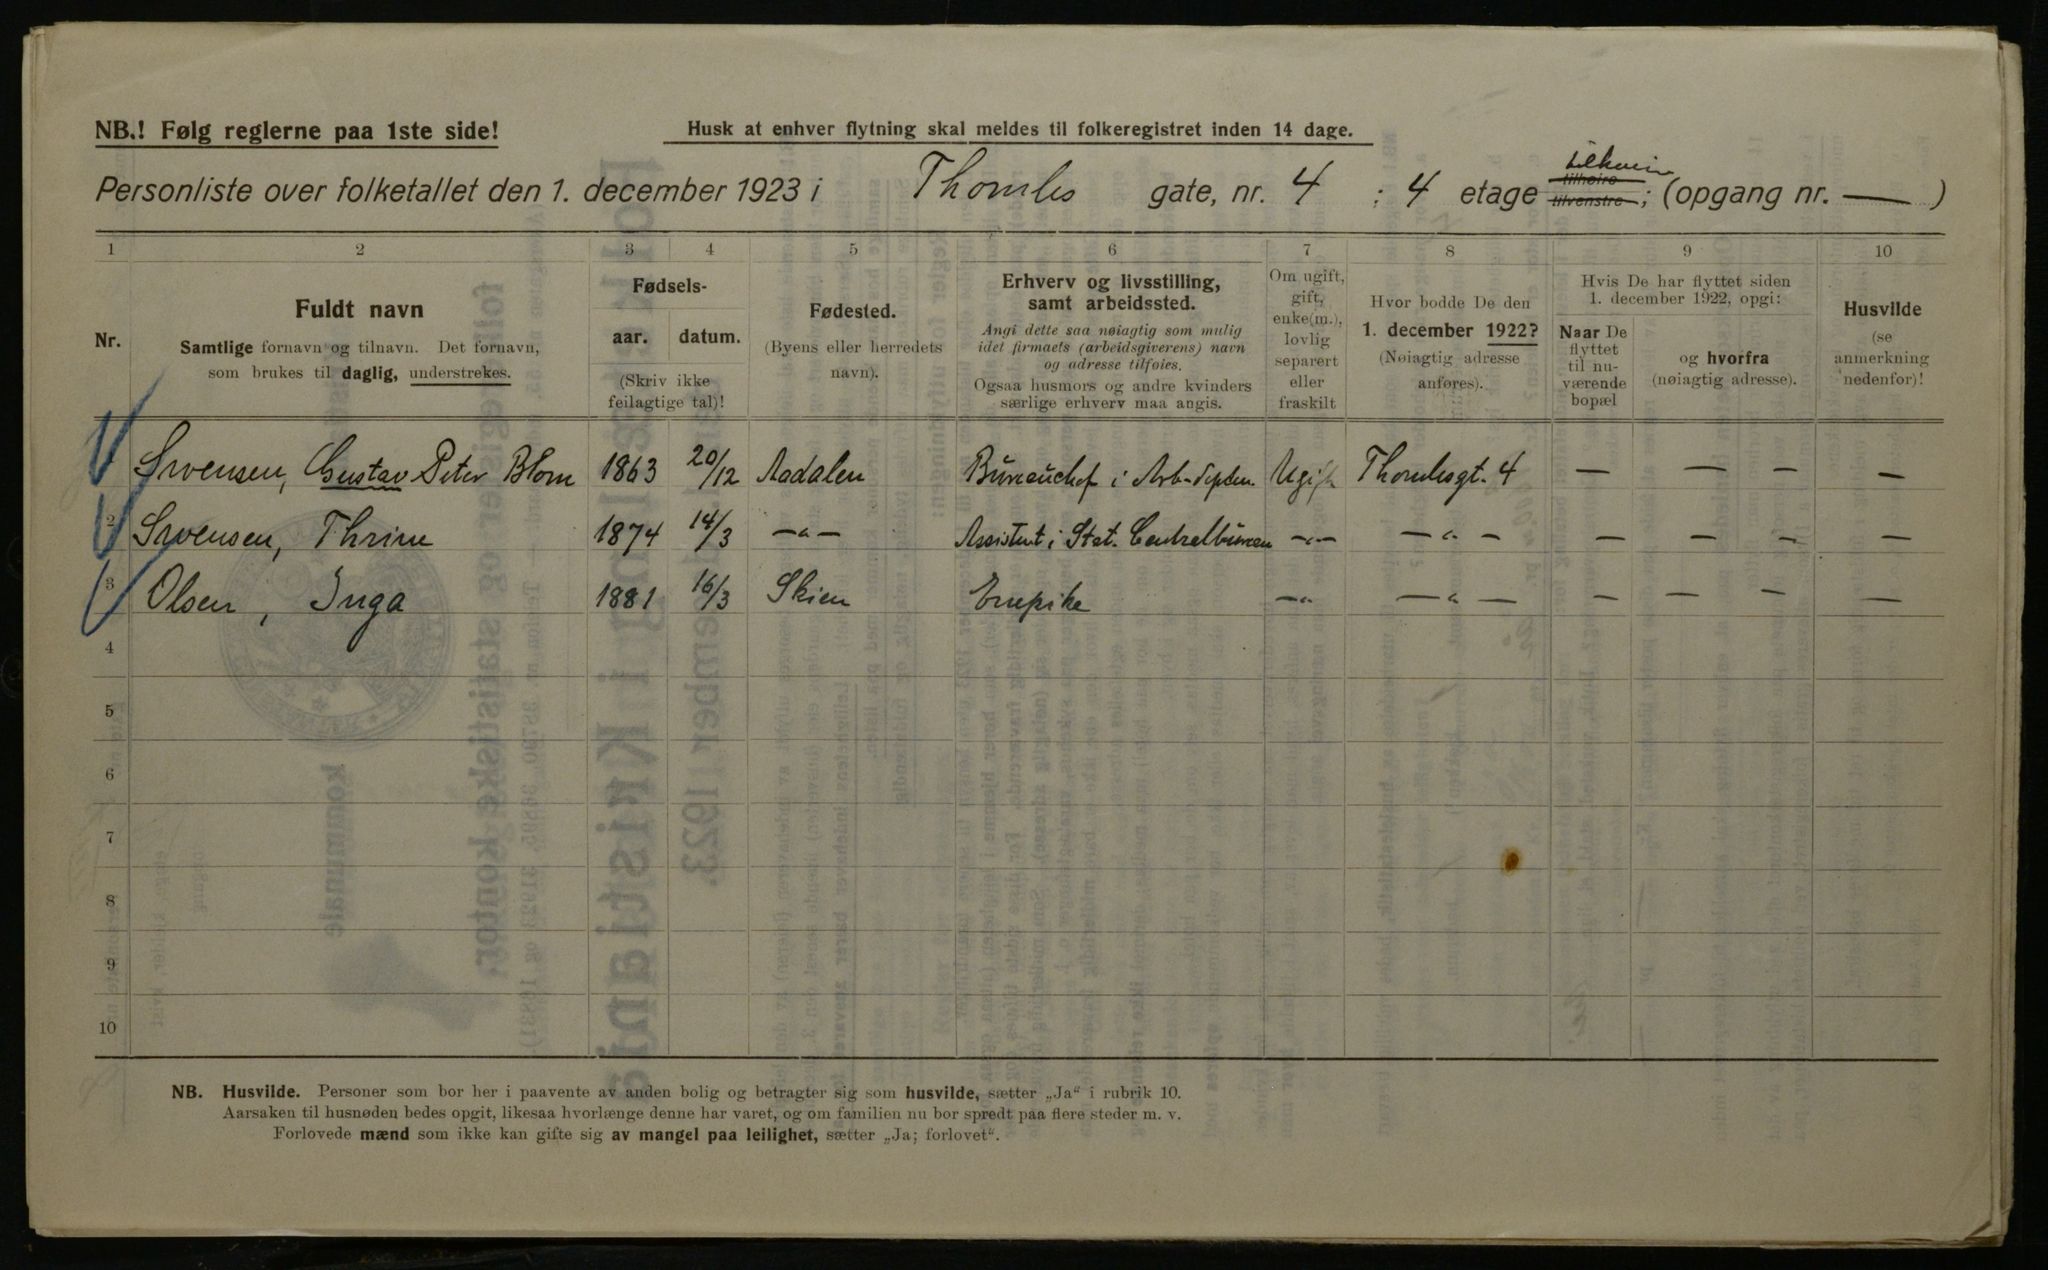 NB.! Følg reglerne paa 1ste side!
Husk at enhver flytning skal meldes til folkeregistret inden 14 dage.
Personliste over folketallet den 1. december 1923 i Thomles gate, nr. 4 : 4 etage tilhøire tilvenstre; (opgang nr. — )
1 2 3 4 5 6 7 8 9 10
Nr.
Fuldt navn
Samtlige fornavn og tilnavn. Det fornavn,
som brukes til daglig, understrekes.
Fødsels-
aar. datum.
(Skriv ikke
feilagtige tal)!
Fødested.
(Byens eller herredets
navn).
Erhverv og livsstilling,
samt arbeidssted.
Angi dette saa nøiagtig som mulig
idet firmaets (arbeidsgiverens) navn
og adresse tilføies.
Ogsaa husmors og andre kvinders
særlige erhverv maa angis.
Om ugift,
gift,
enke(m.),
lovlig
separert
eller
fraskilt
Hvor bodde De den
1. december 1922?
(Nøiagtig adresse
anføres).
Hvis De har flyttet siden
1. december 1922, opgi:
Naar De
flyttet
til nu-
værende
bopæl
og hvorfra
(nøiagtig adresse).
Husvilde
(se
anmerkning
nedenfor)!
Svensen, Gustav Peter Blom 1863 20/12 Aadalen Bureauchef i Arb-depten. Ugift Thomlesgt. 4 — — — —
2 Svensen, Thrine 1874 14/3 —"— Assistent i Stat. Centralbureau —"— — " — — — — —
3 Olsen, Inga 1881 16/3 Skien Enepike —"— — " — — — — —
4
5
6
7
8
9
10
NB. Husvilde. Personer som bor her i paavente av anden bolig og betragter sig som husvilde, sætter „Ja“ i rubrik 10.
Aarsaken til husnøden bedes opgit, likesaa hvorlænge denne har varet, og om familien nu bor spredt paa flere steder m. v.
Forlovede mænd som ikke kan gifte sig av mangel paa leilighet, sætter „Ja; forlovet“.